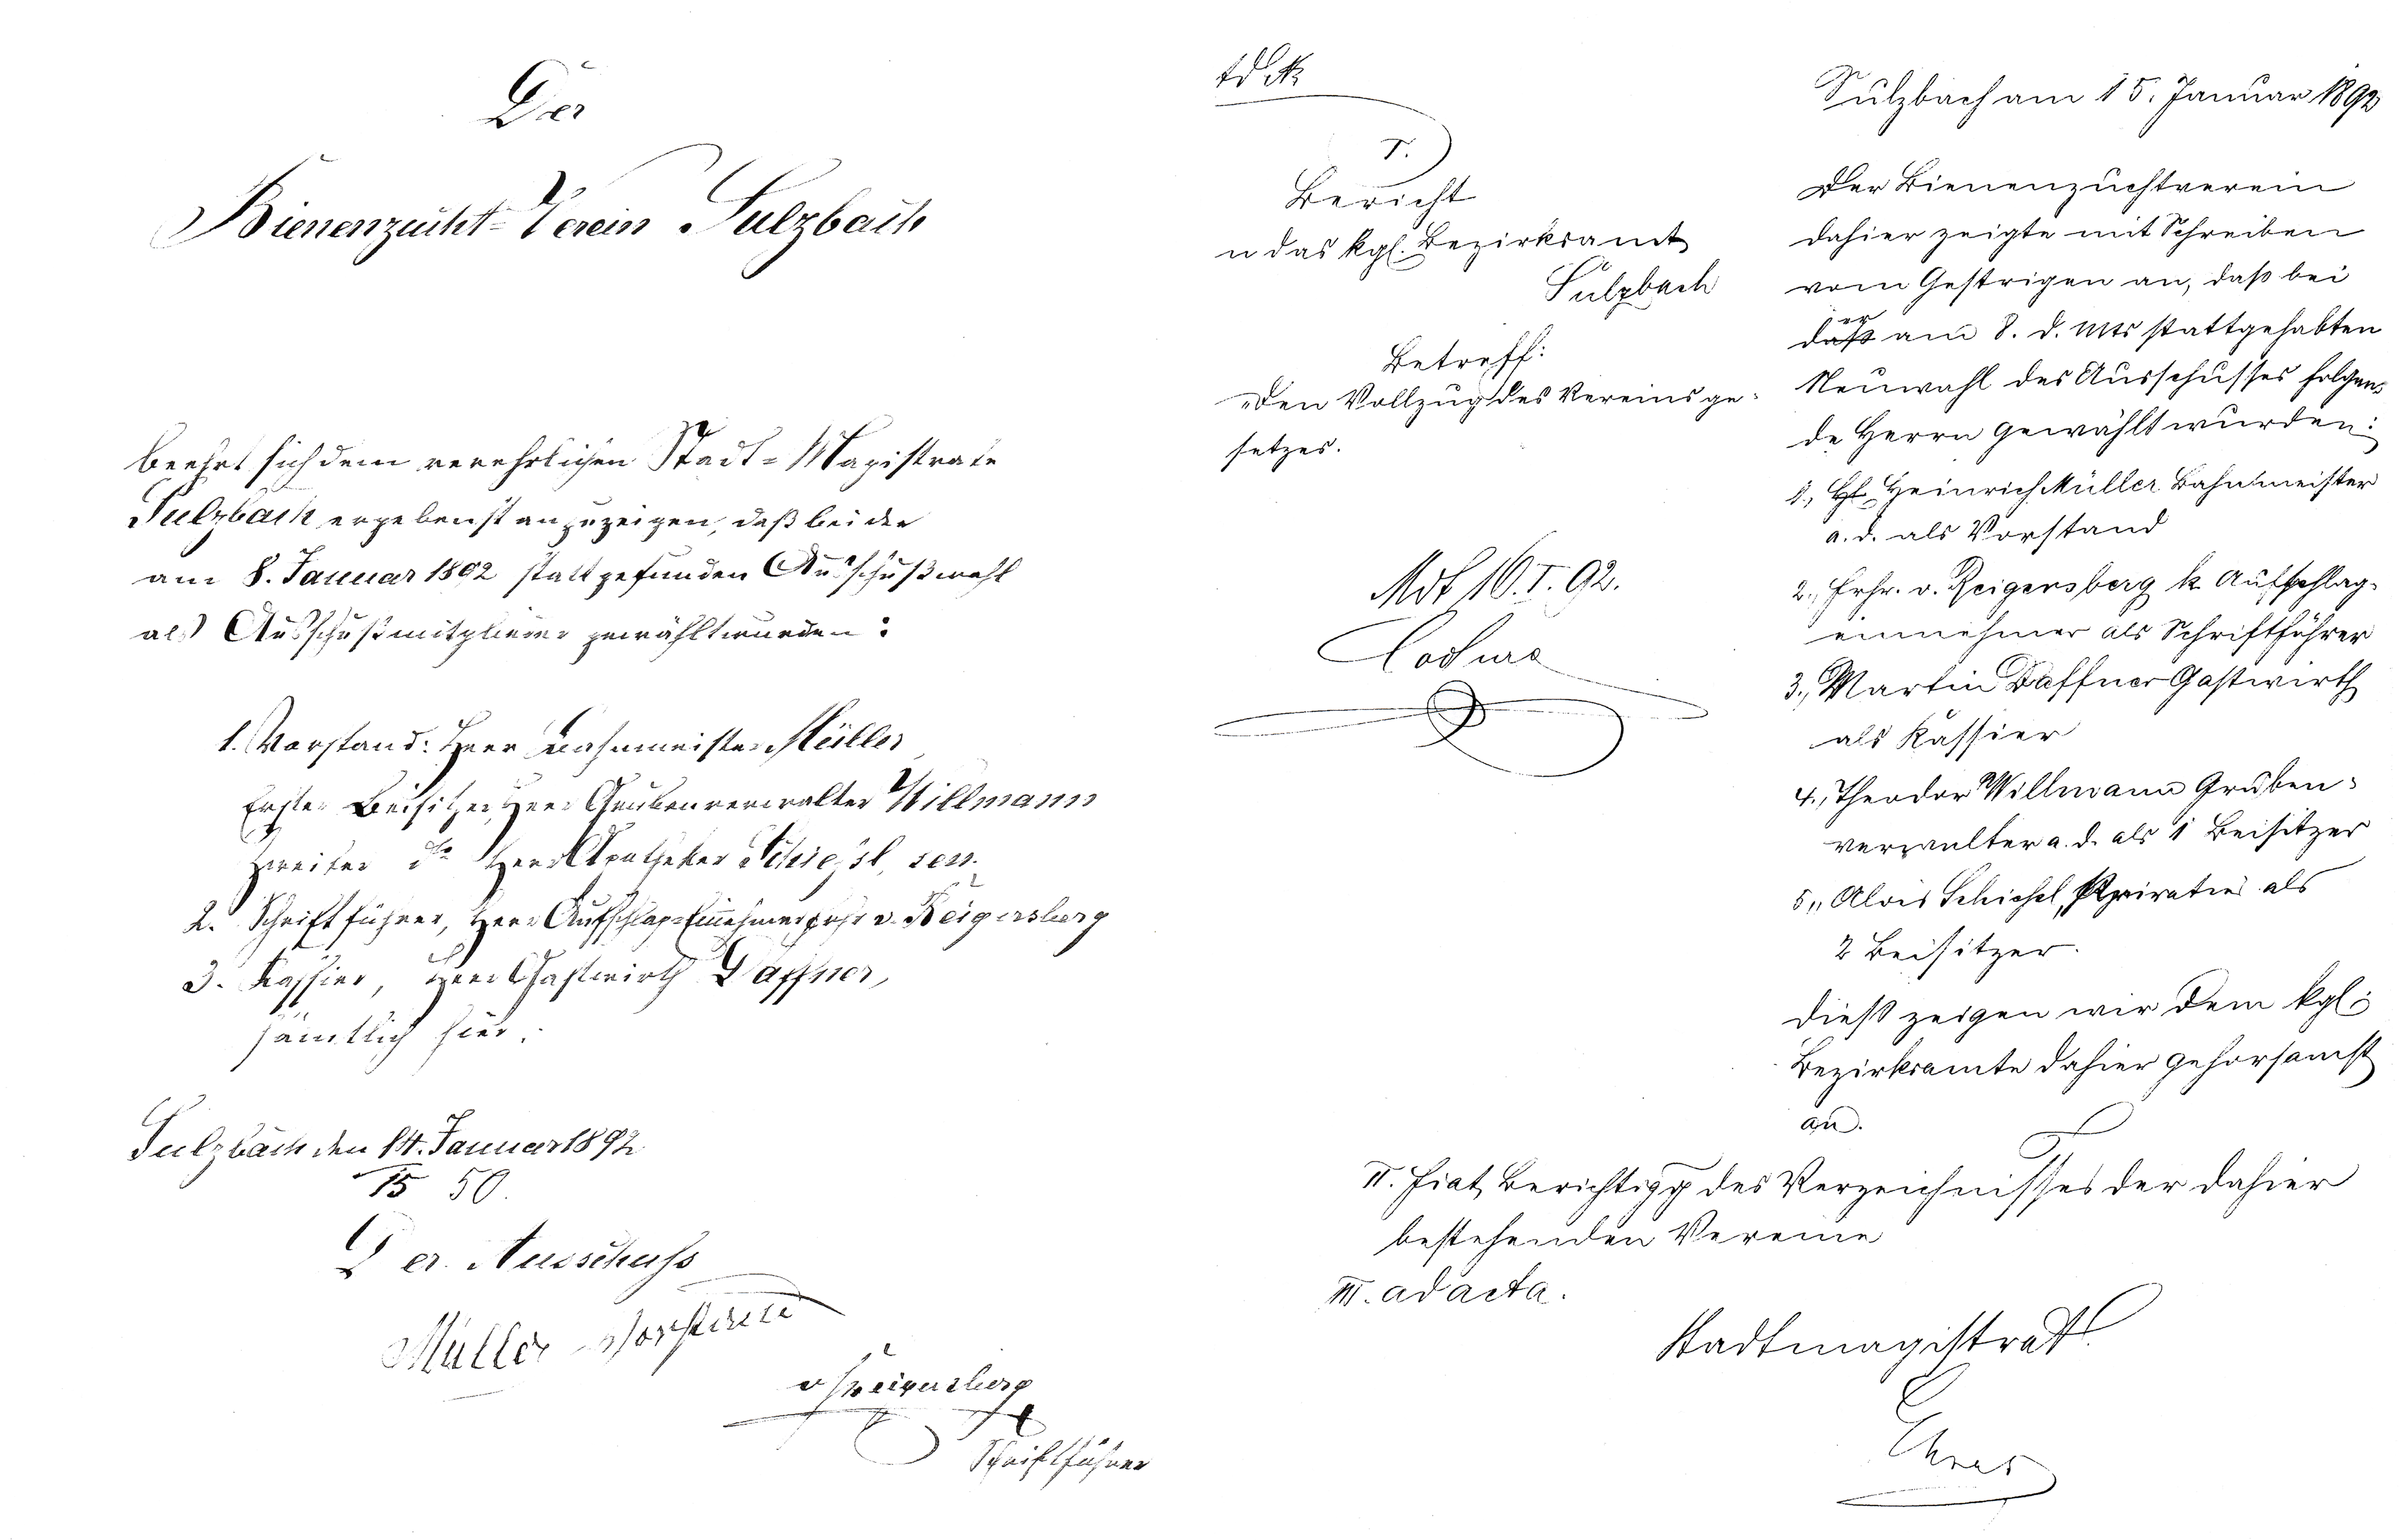 Der
Bienenzucht-Verein Sulzbach
beehrt sich dem verehrlichen Stadt-Magistrate
Sulzbach ergebenst anzuzeigen, daß bei der
am 8. Januar 1892 stattgefunden Ausschußwahl
als Ausschußmitglieder gewählt wurden:
1. Vorstand: Herr Bahnmeister Müller
Erster Beisitzer, Herr Grubenverwalter Willmann
Zweiter dto Herr Apotheker sen.
2. Schriftführer, Herr Aufschlag-Einnehmer Frhr v. Reigersberg
3. Kassier, Herr Gastwirth Daffner,
sämtlich hier.
Sulzbach den 14. Januar 1892
15 50.
Der Ausschuss
Müller Vorstand
v Reigersberg
Schriftführer
I.
Bericht
n das kgl. Bezirksamt
Sulzbach
Betreff:
Den Vollzug des Vereinsge-
setzes.
Mdt 16. I. 92.
Sulzbach am 15. Januar 1892
Der Bienenzuchtverein
dahier zeigte mit Schreiben
vom Gestrigen an, daß bei
der am 8. d. Mts stattgehabten
Neuwahl des Ausschusses folgen-
de Herrn gewählt wurden:
1., Heinrich Müller Bahnmeister
a. d. als Vorstand
2., Frhr. v. Reigersberg k. Aufschlag-
einnehmer als Schriftführer
3., Martin Daffner Gastwirth
als Kassier
4., Theodor Willmann Gruben-
verwalter a. d. als 1 Beisitzer
5., Alois Privatier als
2 Beisitzer.
dieß zeigen wir dem kgl.
Bezirksamte dahier gehorsamst
an.
II. Fiat Berichtigg des Verzeichnisses der dahier
bestehenden Vereine
III. ad acta.
Stadtmagistrat